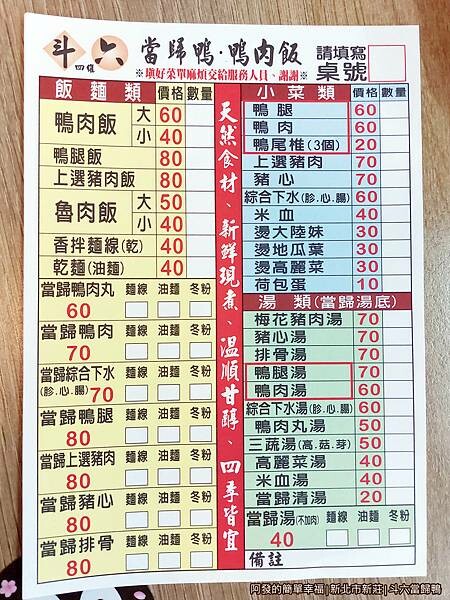 斗六
四維
當歸鴨·鴨肉飯
請填寫
桌號
※填好菜單麻煩交給服務人員、謝謝※
飯麵類 價格 數量
鴨肉飯 大 60
小 40
鴨腿飯 80
上選豬肉飯 80
魯肉飯 大 50
小 40
香拌麵線(乾) 40
乾麵(油麵) 40
當歸鴨肉丸 麵線 油麵 冬粉
60
當歸鴨肉 麵線 油麵 冬粉
70
當歸綜合下水 麵線 油麵 冬粉
(胗.心.腸) 70
當歸鴨腿 麵線 油麵 冬粉
80
當歸上選豬肉 麵線 油麵 冬粉
80
當歸豬心 麵線 油麵 冬粉
80
當歸排骨 麵線 油麵 冬粉
80
天然食材、新鮮現煮、溫順甘醇、四季皆宜
小菜類 價格 數量
鴨腿 60
鴨肉 60
鴨尾椎(3個) 20
上選豬肉 70
豬心 70
綜合下水(胗.心.腸) 60
米血 40
燙大陸妹 30
燙地瓜葉 30
燙高麗菜 30
荷包蛋 10
湯類(當歸湯底)
梅花豬肉湯 70
豬心湯 70
排骨湯 70
鴨腿湯 70
鴨肉湯 60
綜合下水湯(胗.心.腸) 60
鴨肉丸湯 50
三蔬湯(高.菇.芽) 50
高麗菜湯 40
米血湯 40
當歸清湯 20
當歸湯(不加肉) 麵線 油麵 冬粉
40
備註
阿發的簡單幸福|新北市新莊|斗六當歸鴨